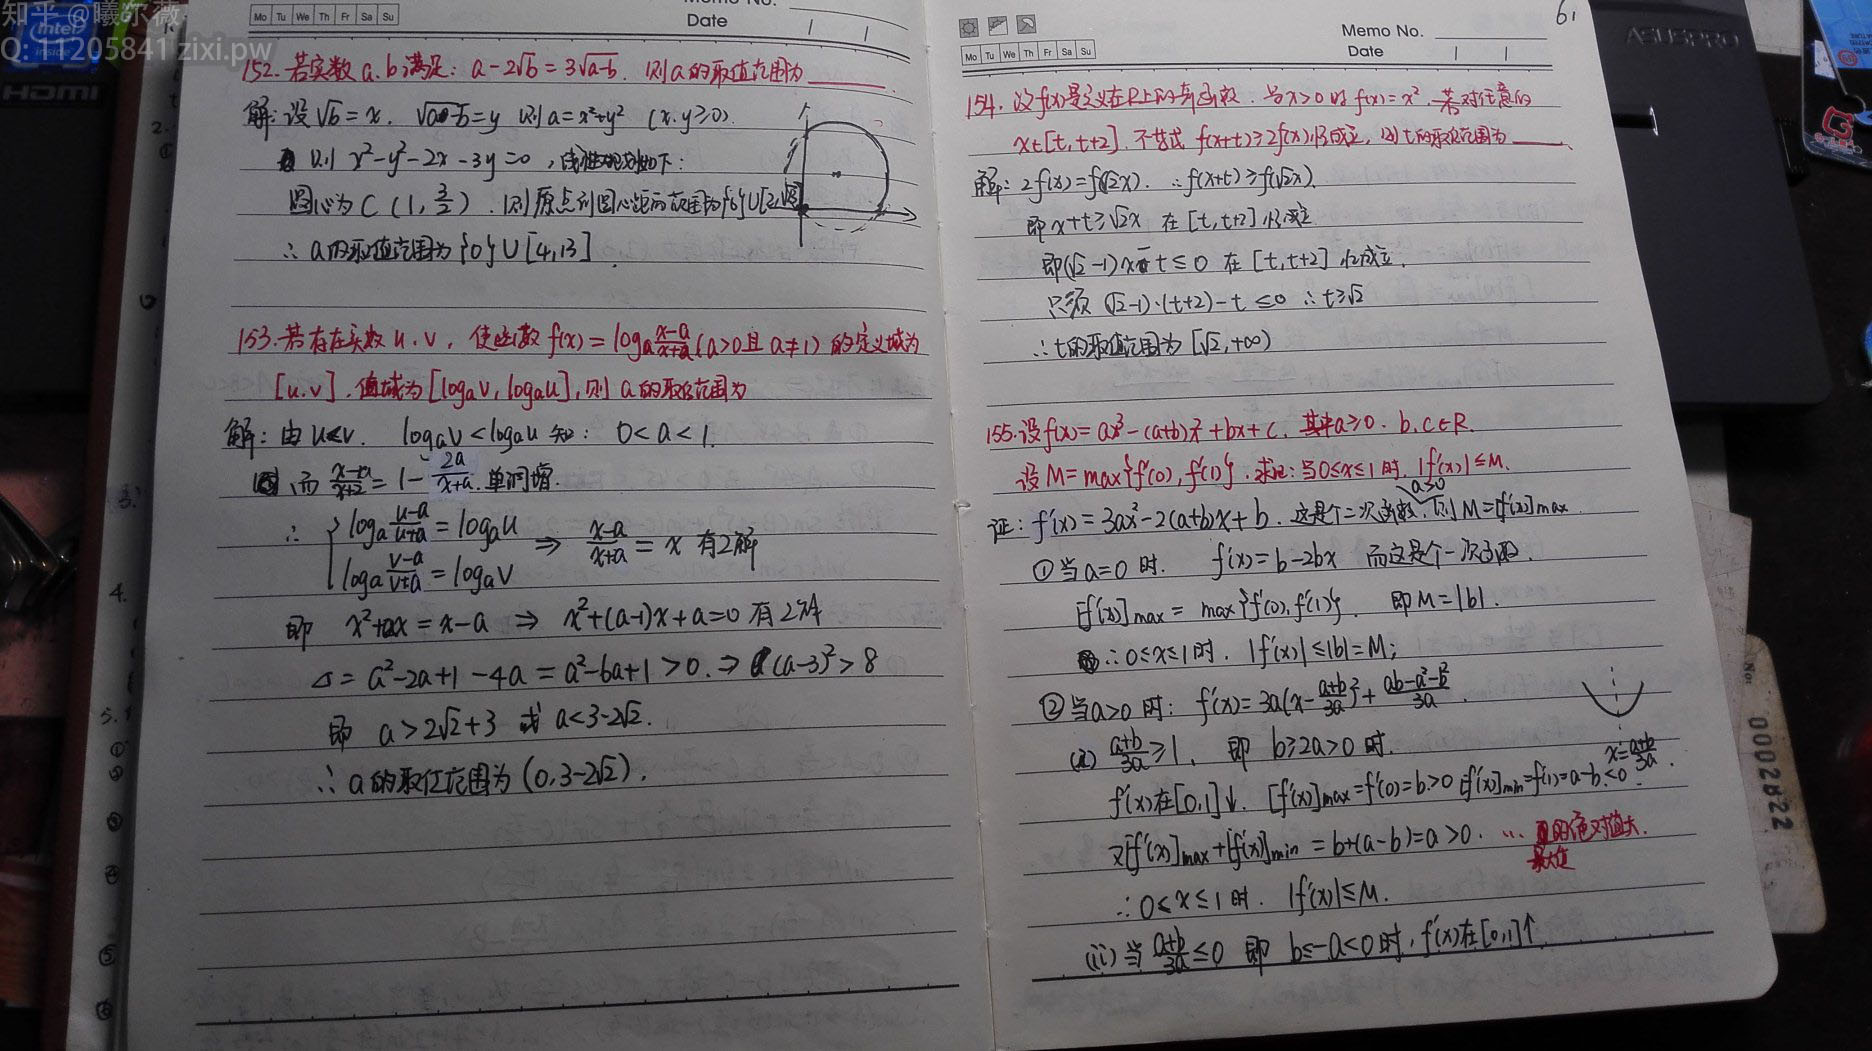 知乎 @曦尔薇
Q: 11205841 zixi.pw
intel
inside
HDMI
Mo Tu We Th Fr Sa Su
Memo No.
Date
152. 若实数 a.b 满足: a-2√b = 3√a-b. 则 a 的取值范围为
解: 设 √b = x. √a-b = y 则 a = x²+y² (x.y≥0).
则 x²-y²-2x-3y=0, 线性规划如下:
圆心为 C (1, 3/2). 则原点到圆心距离范围为{0}∪[2,√13]
∴ a 的取值范围为 {0}∪[4,13].
153. 若存在实数 u.v, 使函数 f(x) = logₐ (x-a)/(x+a) (a>0且 a≠1) 的定义域为
[u.v]. 值域为 [logₐv, logₐu], 则 a 的取值范围为
解: 由 u<v. logₐv < logₐu 知: 0<a<1.
而 (x-a)/(x+a) = 1 - 2a/(x+a). 单调增.
∴ { logₐ (u-a)/(u+a) = logₐu
logₐ (v-a)/(v+a) = logₐv
⇒ (x-a)/(x+a) = x 有2解
即 x²+ax = x-a ⇒ x²+(a-1)x+a=0 有2解
Δ = a²-2a+1-4a = a²-6a+1>0. ⇒ (a-3)²>8
即 a>2√2+3 或 a<3-2√2.
∴ a 的取值范围为 (0, 3-2√2).
61
Memo No.
Date
Mo Tu We Th Fr Sa Su
154. 设 f(x) 是定义在R上的奇函数. 当 x>0 时 f(x)=x². 若对任意的
x∈[t, t+2]. 不等式 f(x+t)≥2f(x)恒成立, 则 t的取值范围为
解: 2f(x)=f(√2x). ∴ f(x+t)≥f(√2x).
即 x+t≥√2x 在 [t, t+2] 恒成立
即(√2-1)x-t≤0 在 [t, t+2] 恒成立.
只须 (√2-1)·(t+2)-t ≤0 ∴ t≥√2
∴ t的取值范围为 [√2,+∞)
155. 设 f(x)= ax³-(a+b)x²+bx+c. 其中 a≥0. b.c∈R.
设 M = max{f'(0), f'(1)}. 求证: 当 0≤x≤1 时. |f'(x)|≤M.
a≥0
证: f'(x)=3ax²-2(a+b)x+b. 这是个二次函数. 则 M=[f'(x)]max.
①当 a=0 时. f'(x)=b-2bx 而这是个一次函数.
[f'(x)]max = max{f'(0), f'(1)}. 即 M=|b|.
∴ 0≤x≤1时. |f'(x)|≤|b|=M;
②当a>0 时: f'(x)=3a(x-(a+b)/3a)²+(ab-a²-b²)/3a.
x=(a+b)/3a.
(i) (a+b)/3a ≥1, 即 b≥2a>0 时.
f'(x)在[0,1]↓. [f'(x)]max=f'(0)=b>0 [f'(x)]min=f'(1)=a-b<0
又[f'(x)]max+[f'(x)]min = b+(a-b)=a>0. … 的绝对值大.
最大值
∴ 0≤x≤1时. |f'(x)|≤M.
(ii) 当 (a+b)/3a ≤0 即 b≤-a<0时, f'(x)在[0,1]↑
ASUSPRO
No:
0002822